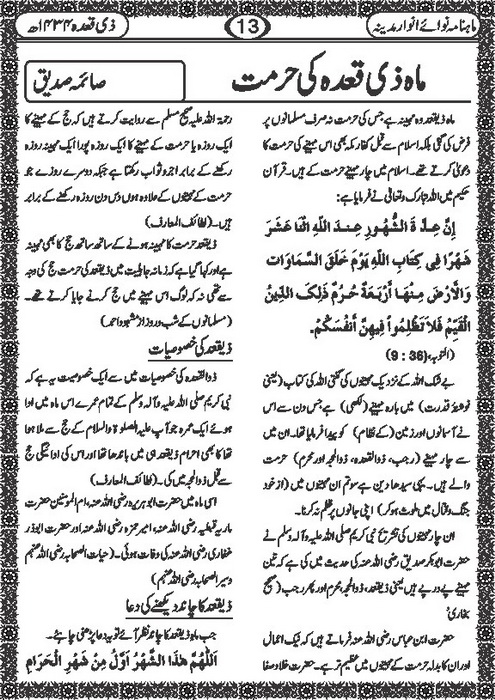 ماہنامہ نوائے انوار مدینہ
13
ذی قعدہ ۱۴۳۴ھ
ماہ ذی قعدہ کی حرمت
صائمہ صدیق
ماہ ذیقعدہ وہ مہینہ ہے جس کی حرمت نہ صرف مسلمانوں پر
فرض کی گئی بلکہ اسلام سے قبل کفار مکہ بھی اس مہینے کی حرمت کا
دعویٰ کرتے تھے۔ اسلام میں چار مہینے حرمت کے ہیں۔ قرآن
حکیم میں اللہ تبارک وتعالیٰ نے فرمایا ہے:
إِنَّ عِدَّةَ الشُّهُورِ عِندَ اللّهِ اثْنَا عَشَرَ
شَهْرًا فِي كِتَابِ اللّهِ يَوْمَ خَلَقَ السَّمَاوَات
وَالأَرْضَ مِنْهَا أَرْبَعَةٌ حُرُمٌ ذَلِكَ الدِّينُ
الْقَيِّمُ فَلاَ تَظْلِمُواْ فِيهِنَّ أَنفُسَكُمْ.
(التوبہ، 9 : 36)
بے شک اللہ کے نزدیک مہینوں کی گنتی اللہ کی کتاب (یعنی
نوشتۂ قدرت) میں بارہ مہینے (لکھی) ہے جس دن سے اس
نے آسمانوں اور زمین (کے نظام) کو پیدا فرمایا تھا۔ ان میں
سے چار مہینے (رجب، ذوالقعدہ، ذوالحجہ اور محرم) حرمت
والے ہیں۔ یہی سیدھا دین ہے سو تم ان مہینوں میں (ازخود
جنگ وقتال میں ملوث ہو کر) اپنی جانوں پر ظلم نہ کرنا۔
ان چار مہینوں کی تشریح نبی کریم صلی اللہ علیہ وآلہ وسلم نے
حضرت ابوبکر صدیق رضی اللہ عنہ کی حدیث میں کی ہے کہ تین
مہینے پے در پے ہیں یعنی ذیقعدہ، ذوالحجہ، محرم اور پھر رجب۔ (صحیح
بخاری)
حضرت ابن عباس رضی اللہ عنہ فرماتے ہیں کہ نیک اعمال
اور ان کا بدلہ حرمت کے مہینوں میں عظیم تر ہے۔ حضرت
رحمۃ اللہ علیہ صحیح مسلم سے روایت کرتے ہیں کہ حج کے مہینے کا
ایک روزہ یا حرمت کے مہینے کا ایک روزہ پورا ایک مہینہ روزہ
رکھنے کے برابر اجر و ثواب رکھتا ہے جبکہ دوسرے روزے جو
حرمت کے مہینوں کے علاوہ ہوں دس دن روزہ رکھنے کے برابر
ہیں۔ (لطائف المعارف)
ذیقعدہ حرمت کا مہینہ ہونے کے ساتھ ساتھ حج کا بھی مہینہ
ہے اور کہا گیا ہے کہ زمانہ جاہلیت میں ذیقعدہ کی حرمت حج کی وجہ
سے تھی نہ کہ لوگ اس مہینے میں حج کرنے جایا کرتے تھے۔
(مسلمانوں کے شب و روز از مشہود احمد)
ذیقعدہ کی خصوصیات
ذوالقعدہ کی خصوصیات میں سے ایک خصوصیت یہ ہے کہ
نبی کریم صلی اللہ علیہ وآلہ وسلم کے تمام عمرے اس ماہ میں ادا
ہوئے ایک عمرہ جو آپ علیہ الصلوۃ والسلام کے حج سے ملا ہوا
تھا کا بھی احرام ذیقعدہ ہی میں باندھا تھا اور اس کی ادائیگی حج
سے قبل ذوالحجہ میں کی۔ (لطائف المعارف)
اسی ماہ میں حضرت ابوہریرہ رضی اللہ عنہ، ام المومنین حضرت
ماریہ قبطیہ رضی اللہ عنہ، امیر حمزہ رضی اللہ عنہ اور حضرت ابوذر
غفاری رضی اللہ عنہ کی وفات ہوئی۔ (حیات الصحابہ رضی اللہ
وسیر الصحابہ رضی اللہ عنہم)
ذیقعدہ کا چاند دیکھنے کی دعا
جب ماہ ذیقعدہ کا چاند نظر آئے تو یہ دعا پڑھنی چاہئے۔
اَللّٰهُمَّ هٰذَا الشَّهْرُ اَوَّلُ مِنْ شَهْرِ الْحَرَامِ